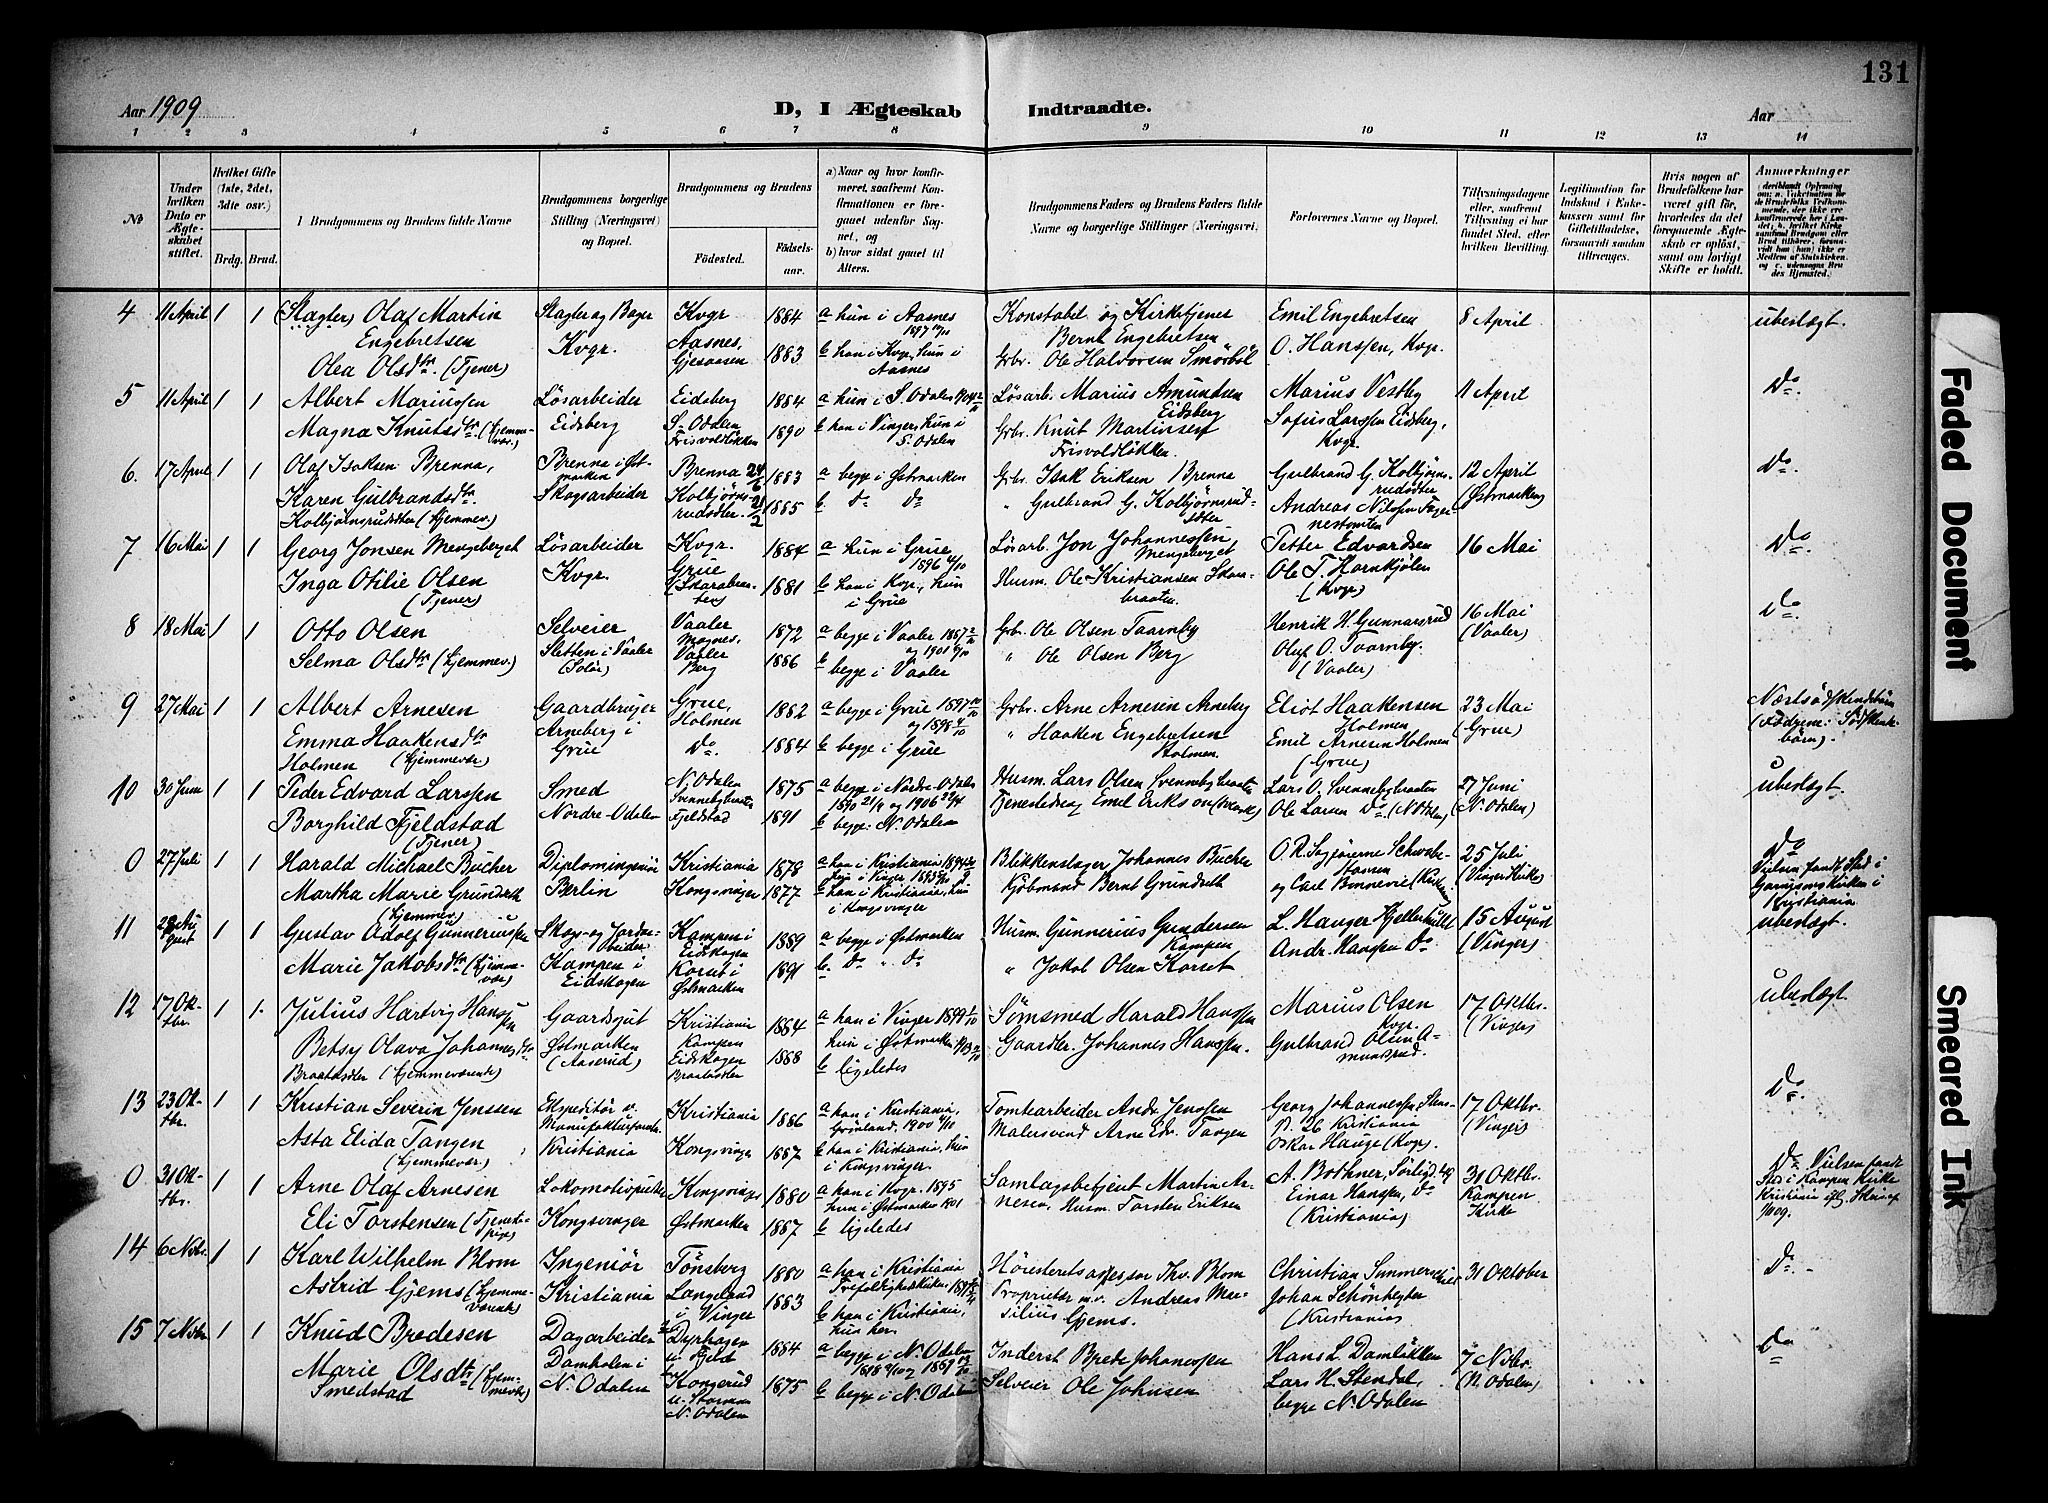 131
Aar 1909
D, I Ægteskab Indtraadte.
Aar
1 2 3 4 5 6 7 8 9 10 11 12 13 14
No
Under hvilken Dato er Ægteskabet stiftet.
Hvilket Gifte (1ste, 2det, 3dte osv.)
Brdg. Brud.
1 Brudgommens og Brudens fulde Navne
Brudgommens borgerlige Stilling (Næringsvei) og Bopæl.
Brudgommens og Brudens
Fødested. Fødselsaar.
a) Naar og hvor konfirmeret, saafremt Konfirmationen er foregaaet udenfor Sognet, og
b) hvor sidst gaaet til Alters.
Brudgommens Faders og Brudens Faders fulde Navne og borgerlige Stillinger (Næringsvei.
Forlovernes Navne og Bopæl.
Tillysningsdagene eller, saafremt Tillysning ei har fundet Sted, efter hvilken Bevilling.
Legitimation for Indskud i Enkekassen samt for Giftetilladelse, forsaavidt saadan tiltrænges.
Hvis nogen af Brudefolkene har været gift før, hvorledes da det foregaaende Ægteskab er opløst, samt om lovligt Skifte er holdt.
Anmærkninger
4 11 April 1 1 (Slagter) Olaf Martin Engebretsen
Olea Olsdtr. (Tjener)
Slagter og Bager Kvgr.
Kvgr 1884
Aasnes, Gjesaasen 1883
a hun i Aasnes 1897
b han i Kvgr, hun i Aasnes
Konstabel og Kirketjener Bernt Engebretsen
Grbr. Ole Halvorsen Smørbøl
Emil Engebretsen
O. Hanssen, Kvgr.
8 April
ubeslægt.
5 11 April 1 1 Albert Mariussen
Magna Knutsdtr (hjemmevær.)
Løsarbeider Eidsberg
Eidsberg 1884
S. Odalen Frisvoldløkken 1890
a hun i S. Odalen
b han i Vinger, hun i S. Odalen
Løsarb. Marius Amundsen Eidsberg
Grbr. Knut Martinsen Frisvoldløkken
Marius Vestby
Sofus Larssen Eidsberg, Kvgr.
11 April
Do.
6. 17 April 1 1 Olaf Isaksen Brenna,
Karen Gulbrandsdtr. Kolbjørnsrudsdter (hjemmev.)
Brenna i Østmarken Skogsarbeider
Brenna 24/6 1883
Kolbjørnsrudsdter. 1885
a begge i Østmarken
b. do do
Grbr. Isak Eriksen Brenna
" Gulbrand G. Kolbjørnsrudsdter
Gulbrand G. Kolbjørnsrudsdter
Andreas Nilssen
12 April (Østmarken)
Do.
7 16 Mai 1 1 Georg Jonsen Mengeberget
Inga Otilie Olsen (Tjener)
Løsarbeider Kvgr.
Kvgr. 1884
Grue 1881
a hun i Grue, 1896
b han i Kvgr., hun i Grue
Løsarb. Jon Johannessen Mengeberget
Husm. Ole Kristiansen
Petter Edvardsen
Ole T. Hornkjølen (Kvgr)
16 Mai
Do.
8 18 Mai 1 1 Otto Olsen
Selma Olsdtr (hjemmev.)
Selveier Sletten i Vaaler (Solør)
Vaaler Mognes, 1872
Vaaler Berg 1886
a begge i Vaaler 1887 og 1901
b begge i Vaaler
Grbr. Ole Olsen Taarnby
" Ole Olsen Berg
Henrik H. Gunnarsrud
Oluf O. Taarnby. (Vaaler)
16 Mai (Vaaler)
Do.
9 27 Mai 1 1 Albert Arnesen
Emma Haakensdtr Holmen (hjemmevær)
Gaardbruger Arneberg i Grue
Grue, Holmen 1882
Do 1884
a begge i Grue 1897 og 1898
b begge i Grue
Grbr. Arne Arnesen Arneberg
" Haaken Engebretsen Holmen.
Eliot Haakensen Holmen
Emil Arnesen Holmen (Grue)
23 Mai (Grue)
Næstsødskendebørn
(Fædrene: Sødskendebörn).
10 30 Juni 1 1 Peder Edvard Larssen
Borghild Fjeldstad (Tjener)
Smed Nordre-Odalen
N. Odalen Svennebybraaten 1875
Fjeldstad 1891
a begge i Nordre-Odalen 1890 21/9 og 1906
b begge: N. Odalen
Husm. Lars Olsen Svennebybraaten
Tjenestedreng Emil Eriksen
Lars O. Svennebybraaten
Ole Larsen Do. (N. Odalen)
27 Juni (N. Odalen)
ubeslægt.
0 27 Juli 1 1 Harald Michael Bucher
Martha Marie Grundseth (hjemmev.)
Diplomingeniør Berlin
Kristiania 1878
Kongsvinger 1877
a han i Kristiania 1894 hun i Vinger 1893
b han i Kristiania, hun i Kongsvinger
Blikkenslager Johannes Bucher
Kjøbmand Bernt Grundseth
O. R. Sagførerne Schwabe-Hansen og Carl Bonnevie
25 Juli (Vinger Kirke)
Do
Vielsen fandt Sted i Garnisonskirken i Kristiania
11 28 August 1 1 Gustav Adolf Gunneriussen
Marie Jakobsdtr (hjemmevær)
Skog- og Jordarbeider Kampen i Eidskogen
Kampen i Eidskogen 1889
Korset i Østmarken 1891
a begge i Østmarken
b. Do " do
Husm. Gunnerius Gundersen Kampen
" Jakob Olsen Korset
L. Hauger Hjellerhullet
Andr. Hanssen Do
15 August (Vinger)
ubeslægt.
12 17 Oktbr. 1 1. Julius Hartvig Hanssen
Betsy Olava Johannesdtr Braatasdter (hjemmeværende)
Gaardsgut Østmarken (Aaserud)
Kristiania Kampen 1884
Eidskogen Braatasdter 1888
a han i Vinger 1899 hun i Østmarken 1903
b ligeledes
Sømsmed Harald Hanssen
Gaardbr. Johannes Hanssen.
Marius Olsen Kvgr.
Gulbrand Olsen Amundsrud.
17 Oktbr. (Vinger)
ubeslægt.
13 23 Oktbr. 1 1 Kristian Severin Jenssen
Asta Elida Tangen (hjemmevær.)
Ekspeditør Kristiania
Kristiania 1886
Kongsvinger 1887
a han i Kristiania, Grønland, 1900
b han i Kristiania, hun i Kongsvinger.
Tomtearbeider Andr. Jenssen
Malersvend Arne Edv. Tangen
Georg Johannessen, 26 Kristiania
Oskar Hauge (Kvgr).
17 Oktbr. (Vinger)
Do.
0 31 Oktbr. 1 1 Arne Olaf Arnesen
Eli Torstensen (Tjenestepige)
Lokomotivpudser Kongsvinger
Kongsvinger 1880
Østmarken 1887
a han i Kvgr. 1895 hun i Østmarken 1901
b ligeledes
Samlagsbetjent Martin Arnesen. Husm. Torsten Eriksen
A. Bothner,
Einar Hanssen, do (Kristiania)
31 Oktbr. Kampen Kirke
Do. Vielsen fandt Sted i Kampen Kirke Kristiania
14 6 Nvbr. 1 1 Karl Wilhelm Blom
Astrid Gjems (hjemmeværende)
Ingeniør Kristiania
Tønsberg 1880
Langeland i Vinger 1883
a han i Kristiania Trefoldighedskirken 1897
b han i Kristiania, hun her
Høiesteretsassessor Thv. Blom
Proprietær m.v. Andreas Mesilius Gjems.
Christian
Johan Schönheyter (Kristiania)
31 Oktober
Do. -
15 7 Nvbr 1 1 Knud Bredesen
Marie Olsdtr (hjemmevær) Smedstad
Dagarbeider Damholen i N. Odalen
Dyrhagen u. Fjeld 1884
Kongerud N. Odalen 1875
a begge i N. Odalen og 1889
b begge i N. Odalen
Inderst Brede Johannssen
Selveier Ole Johnsen
Hans L. Damløkken
Lars H. Stendal, begge N. Odalen
7 Nvbr. (N. Odalen)
Do
Faded Document
Smeared Ink